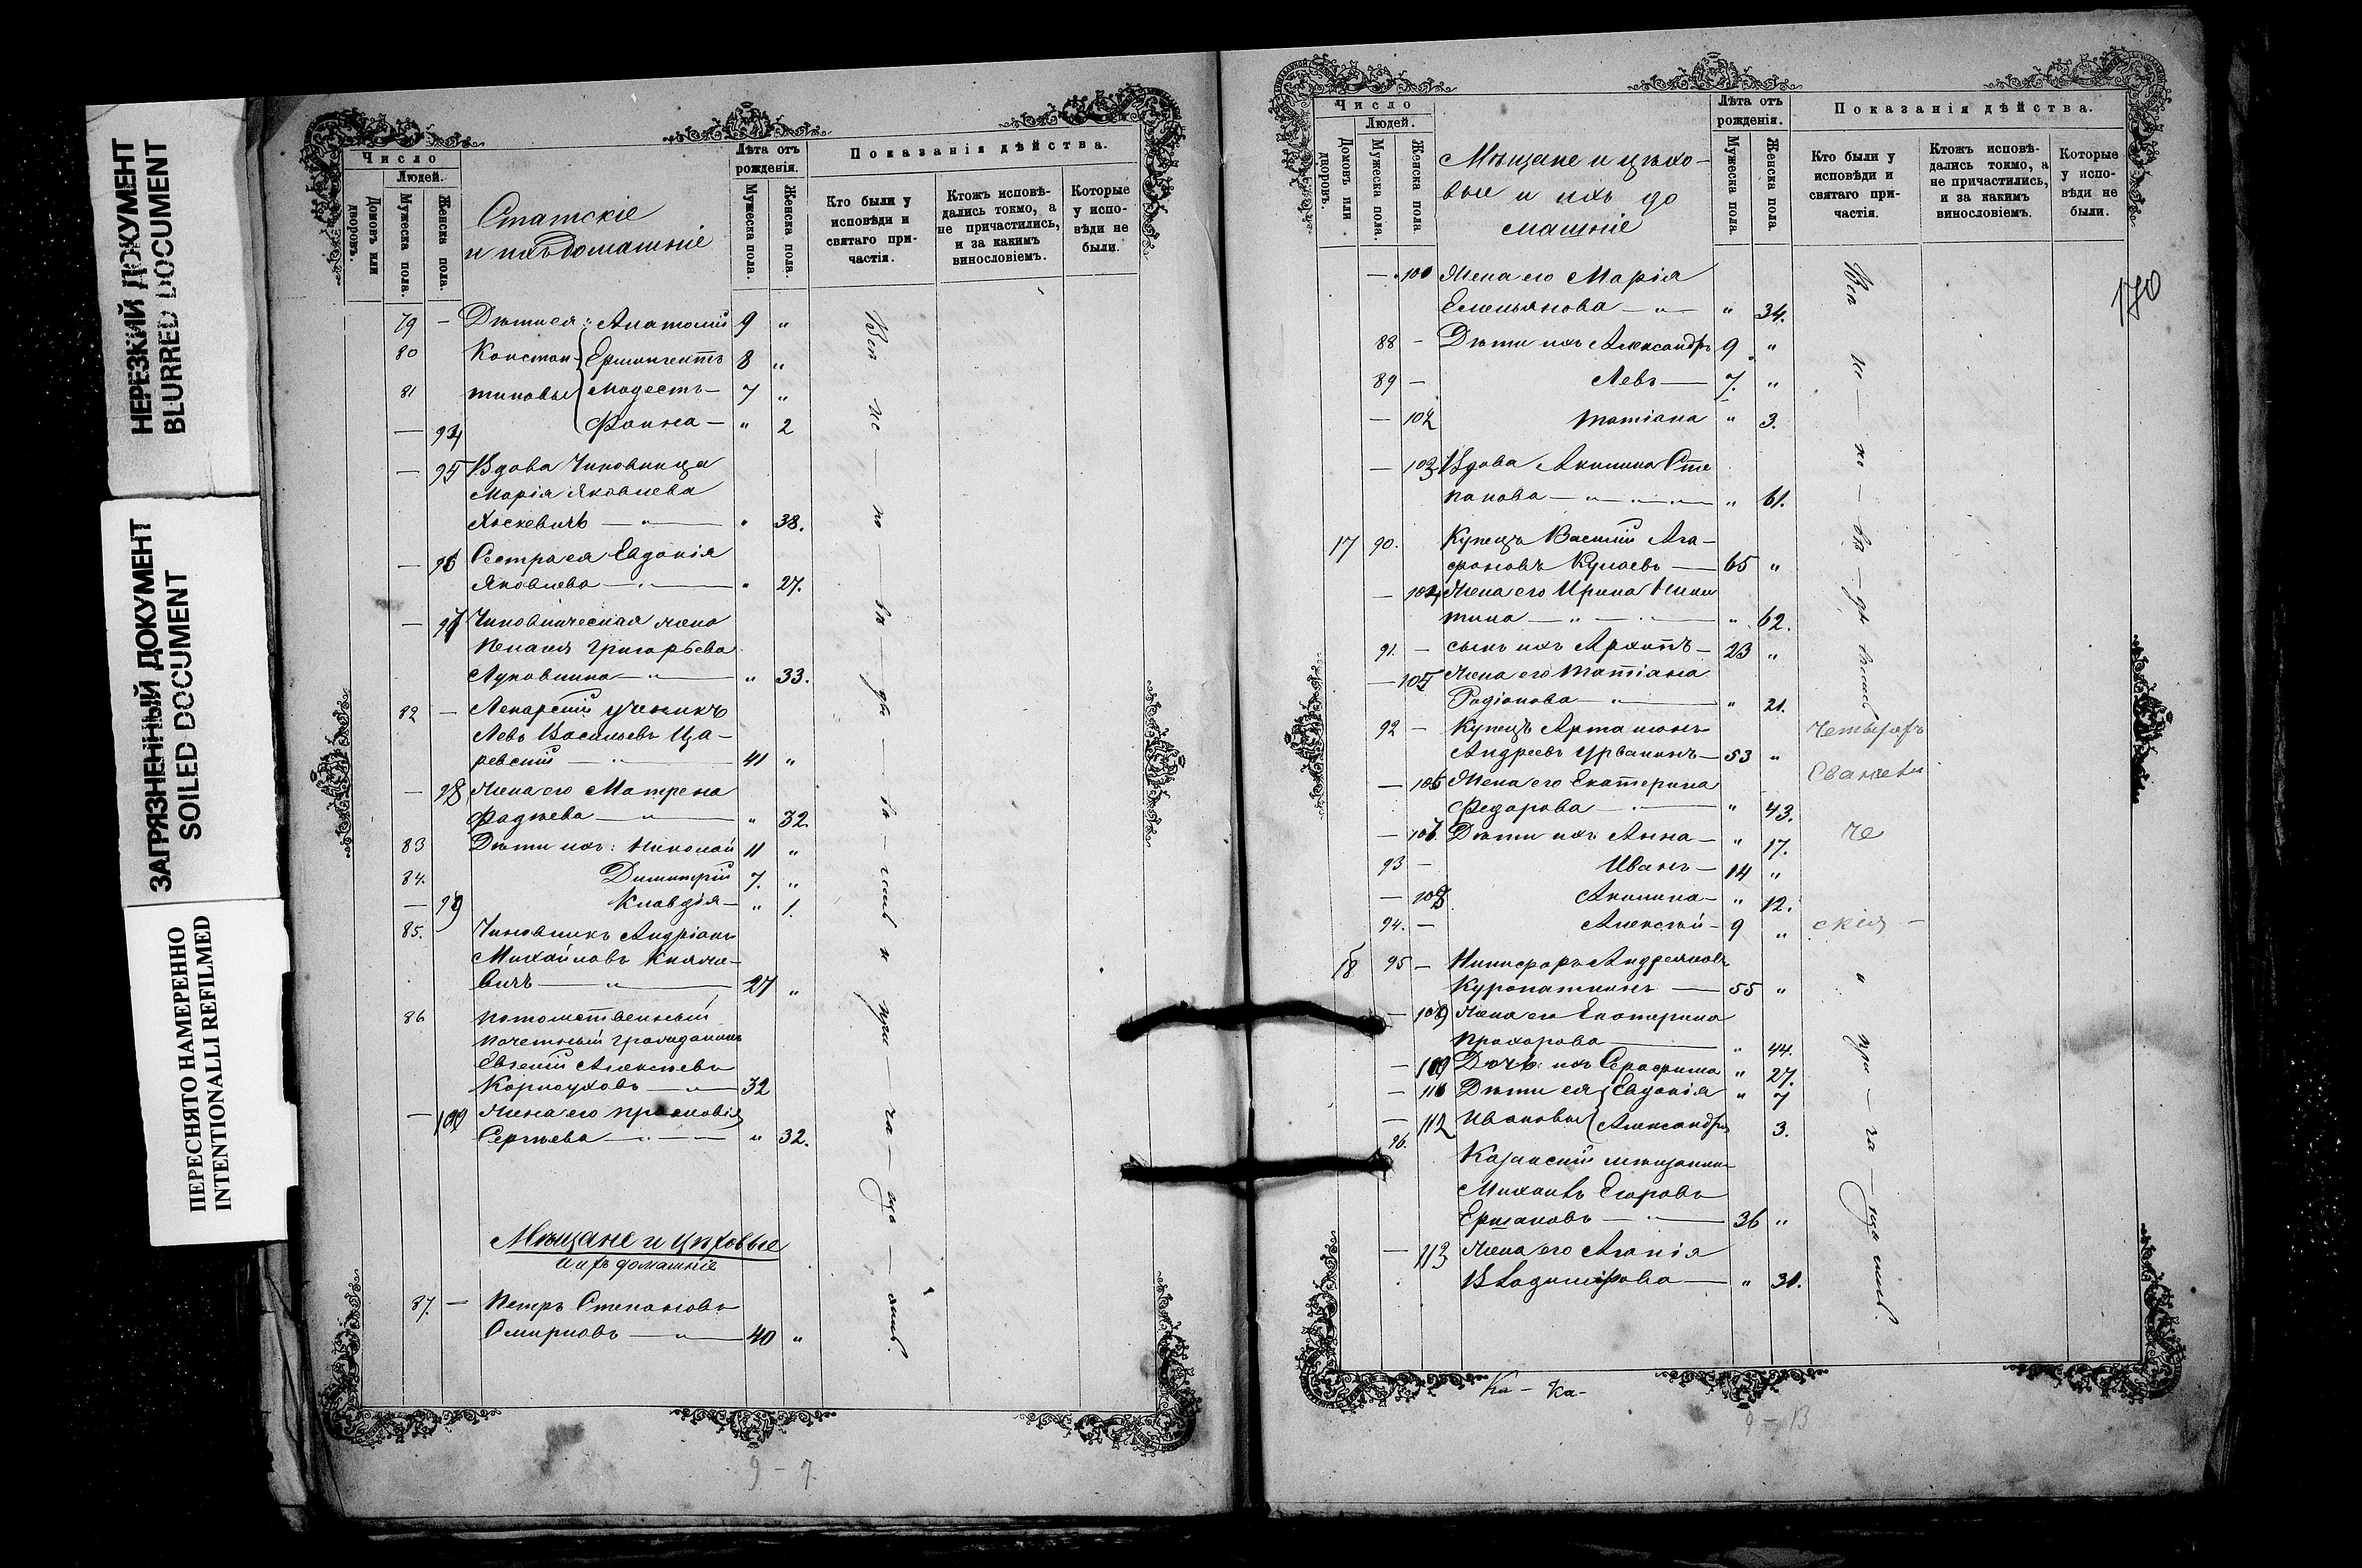 НЕРЕЗКИЙ ДОКУМЕНТ
BLURRED DOCUMENT
ЗАГРЯЗНЕННЫЙ ДОКУМЕНТ
SOILED DOCUMENT
ПЕРЕСНЯТО НАМЕРЕННО
INTENTIONALLI REFILMED
Число
Людей.
Домовъ или дворовъ.
Мужеска пола.
Женска пола.
Статскіе
и ихъ домашніе
Лѣта отъ рожденія.
Мужеска пола.
Женска пола.
Показанія дѣйства.
Кто были у исповѣди и святаго причастія.
Ктожъ исповѣдались токмо, а не причастились, и за какимъ винословіемъ.
Которые у исповѣди не были.
79 — Дѣти ея: Анатолій 9 "
80 Констан- 8 "
81 тиновы Модестъ — 7 "
— 94 Фаина — " 2
— 95 Вдова Чиновница
Марія Яковлева
— " — " 38.
— 96 Сестра ея Евдокія
Яковлева — " 27.
— 97 Чиновническая жена
Григорьева
— " — " 33.
82 — Лекарскій ученикъ
Левъ Васильевъ Ца-
ревскій — " — 41 "
— 98 Жена его Матрена
Фадѣева — " — " 32.
83 Дѣти ихъ: Николай 11 "
84. Димитрій 7. "
— 99 Клавдія — " 1.
85. Чиновникъ Андріанъ
Михайловъ Княже-
вичъ — " — 27 "
86 потомственный
почетный гражданинъ
Евгеній Алексѣевъ
Карпоуховъ — " — 32
— 100 Жена его Прасковія
Сергѣева — " — " 32.
Мѣщане и цѣховые
и ихъ домашніе
87. — Петръ Степановъ
Смирновъ — " — 40 "
9 - 7
Число
Людей.
Домовъ или дворовъ.
Мужеска пола.
Женска пола.
Мѣщане и цѣхо-
вые и ихъ до
машніе
Лѣта отъ рожденія.
Мужеска пола.
Женска пола.
Показанія дѣйства.
Кто были у исповѣди и святаго причастія.
Ктожъ исповѣдались токмо, а не причастились, и за какимъ винословіемъ.
Которые у исповѣди не были.
170
— 101 Жена его Марія
Емельянова — " — " 34.
88 — Дѣти ихъ Александръ 9 "
89 — Левъ — 7. "
— 102 Татіана " 3.
— 103 Вдова Акилина Сте
панова — " — " 61.
17 90. Купецъ Василій Ага-
фоновъ — 65 "
— 104 Жена его Ирина Ники
тина — " — " 62.
91. — сынъ ихъ Архипъ — 23 "
— 105 Жена его Татіана
Родіонова — " — " 21.
92 — Купецъ Артамонъ
Андреевъ Урванинъ — 53 "
Четырехъ
— 106 Жена его Екатерина
Федорова — " 43.
— 107. Дѣти ихъ Анна — " 17.
93 — Иванъ — 14 "
— 108 Акилина — " 12.
94. — Алексѣй — 9 "
18 95 — Никифоръ Андреяновъ
Куропаткинъ — 55 "
— 109 Жена его Екатерина
Прохорова — " 44.
— 110 Дочь ихъ Серафима " 27.
— 111 Дѣти ея Евдокія " 7
— 112 Ивановы Александра 3.
96. Казанскій мѣщанинъ
Михаилъ Егоровъ
Ермаковъ — " — 36 "
— 113 Жена его Агапія
Владимірова — " 31.
Ка - ка-
9 - 13